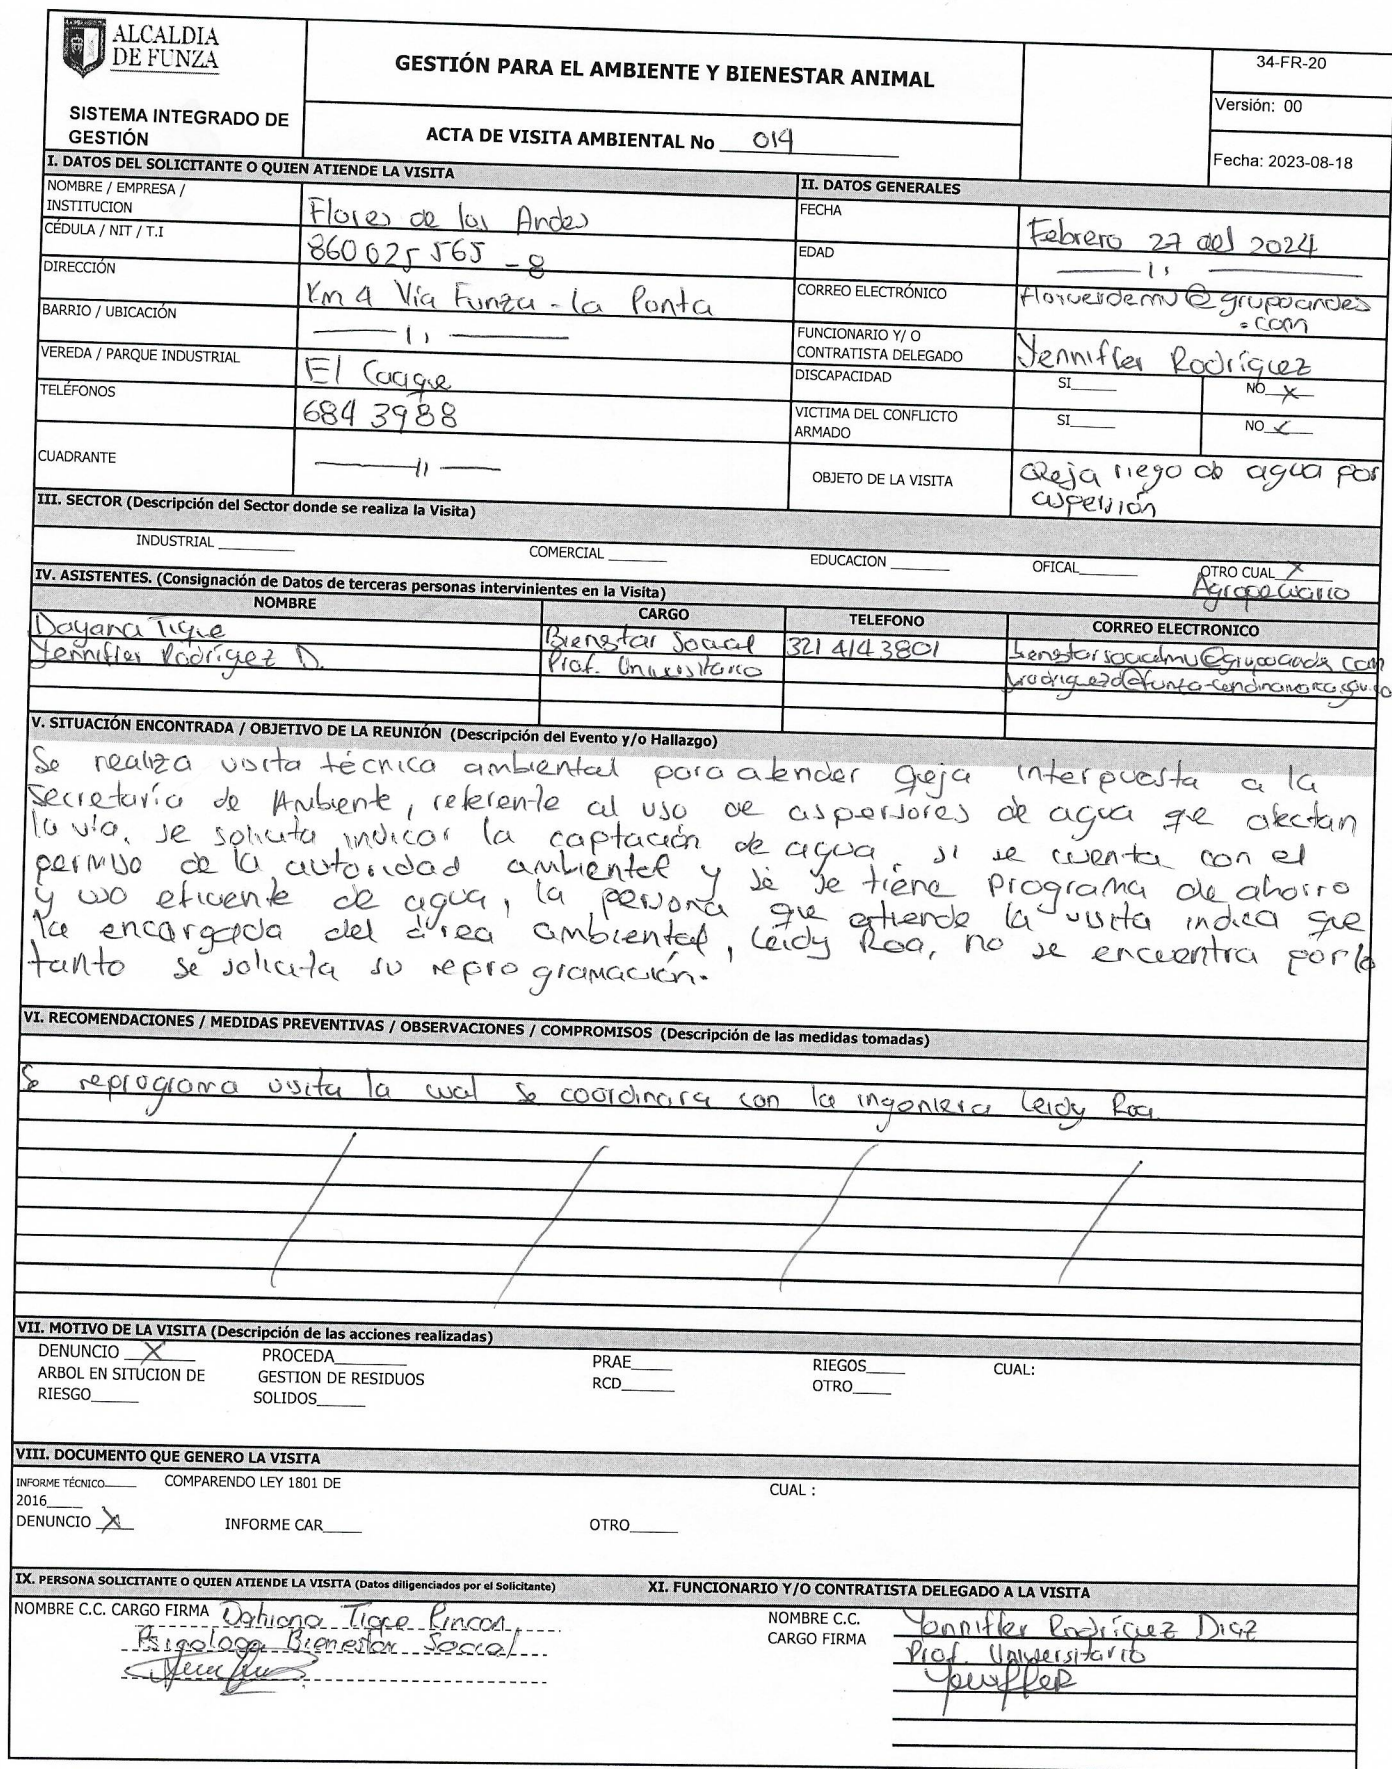 ALCALDIA
DE FUNZA
SISTEMA INTEGRADO DE
GESTIÓN
GESTIÓN PARA EL AMBIENTE Y BIENESTAR ANIMAL
ACTA DE VISITA AMBIENTAL No 014
34-FR-20
Versión: 00
Fecha: 2023-08-18
I. DATOS DEL SOLICITANTE O QUIEN ATIENDE LA VISITA
NOMBRE / EMPRESA /
INSTITUCION
Flores de los Andes
CÉDULA / NIT / T.I
860025565-8
DIRECCIÓN
Km 4 Vía Funza - la Punta
BARRIO / UBICACIÓN
VEREDA / PARQUE INDUSTRIAL
El Cacique
TELÉFONOS
684 3988
CUADRANTE
II. DATOS GENERALES
FECHA
Febrero 27 del 2024
EDAD
CORREO ELECTRÓNICO
@grupoandes
.com
FUNCIONARIO Y/ O
CONTRATISTA DELEGADO
Yenniffer Rodríguez
DISCAPACIDAD
SI____ NO X
VICTIMA DEL CONFLICTO
ARMADO
SI____ NO X
OBJETO DE LA VISITA
Queja riego de agua por
III. SECTOR (Descripción del Sector donde se realiza la Visita)
INDUSTRIAL ____ COMERCIAL ____ EDUCACION ____ OFICAL____ OTRO CUAL X
Agropecuario
IV. ASISTENTES. (Consignación de Datos de terceras personas intervinientes en la Visita)
NOMBRE CARGO TELEFONO CORREO ELECTRONICO
Dayana Tique Bienestar Social 321 414 3801
Yenniffer Rodríguez D. Prof. Universitario
V. SITUACIÓN ENCONTRADA / OBJETIVO DE LA REUNIÓN (Descripción del Evento y/o Hallazgo)
Se realiza visita técnica ambiental para atender qeja interpuesta a la
Secretaría de Ambiente, referente al uso de aspersores de agua qe afectan
la vía, se solicita indicar la captación de agua, si se cuenta con el
permiso de la autoridad ambiental y si se tiene programa de ahorro
y uso eficiente de agua, la persona que atiende la visita indica que
la encargada del área ambiental, Leidy Roa, no se encuentra por lo
tanto se solicita su reprogramación.
VI. RECOMENDACIONES / MEDIDAS PREVENTIVAS / OBSERVACIONES / COMPROMISOS (Descripción de las medidas tomadas)
Se reprograma visita la cual se coordinara con la ingeniera Leidy Roa
VII. MOTIVO DE LA VISITA (Descripción de las acciones realizadas)
DENUNCIO X PROCEDA____ PRAE____ RIEGOS____ CUAL:
ARBOL EN SITUCION DE GESTION DE RESIDUOS RCD____ OTRO____
RIESGO____ SOLIDOS____
VIII. DOCUMENTO QUE GENERO LA VISITA
INFORME TÉCNICO____ COMPARENDO LEY 1801 DE CUAL :
2016____
DENUNCIO X INFORME CAR____ OTRO____
IX. PERSONA SOLICITANTE O QUIEN ATIENDE LA VISITA (Datos diligenciados por el Solicitante)
NOMBRE C.C. CARGO FIRMA Dahiana Tique Rincon
Psicologa Bienestar Social
XI. FUNCIONARIO Y/O CONTRATISTA DELEGADO A LA VISITA
NOMBRE C.C. Yenniffer Rodríguez Diaz
CARGO FIRMA Prof. Universitario